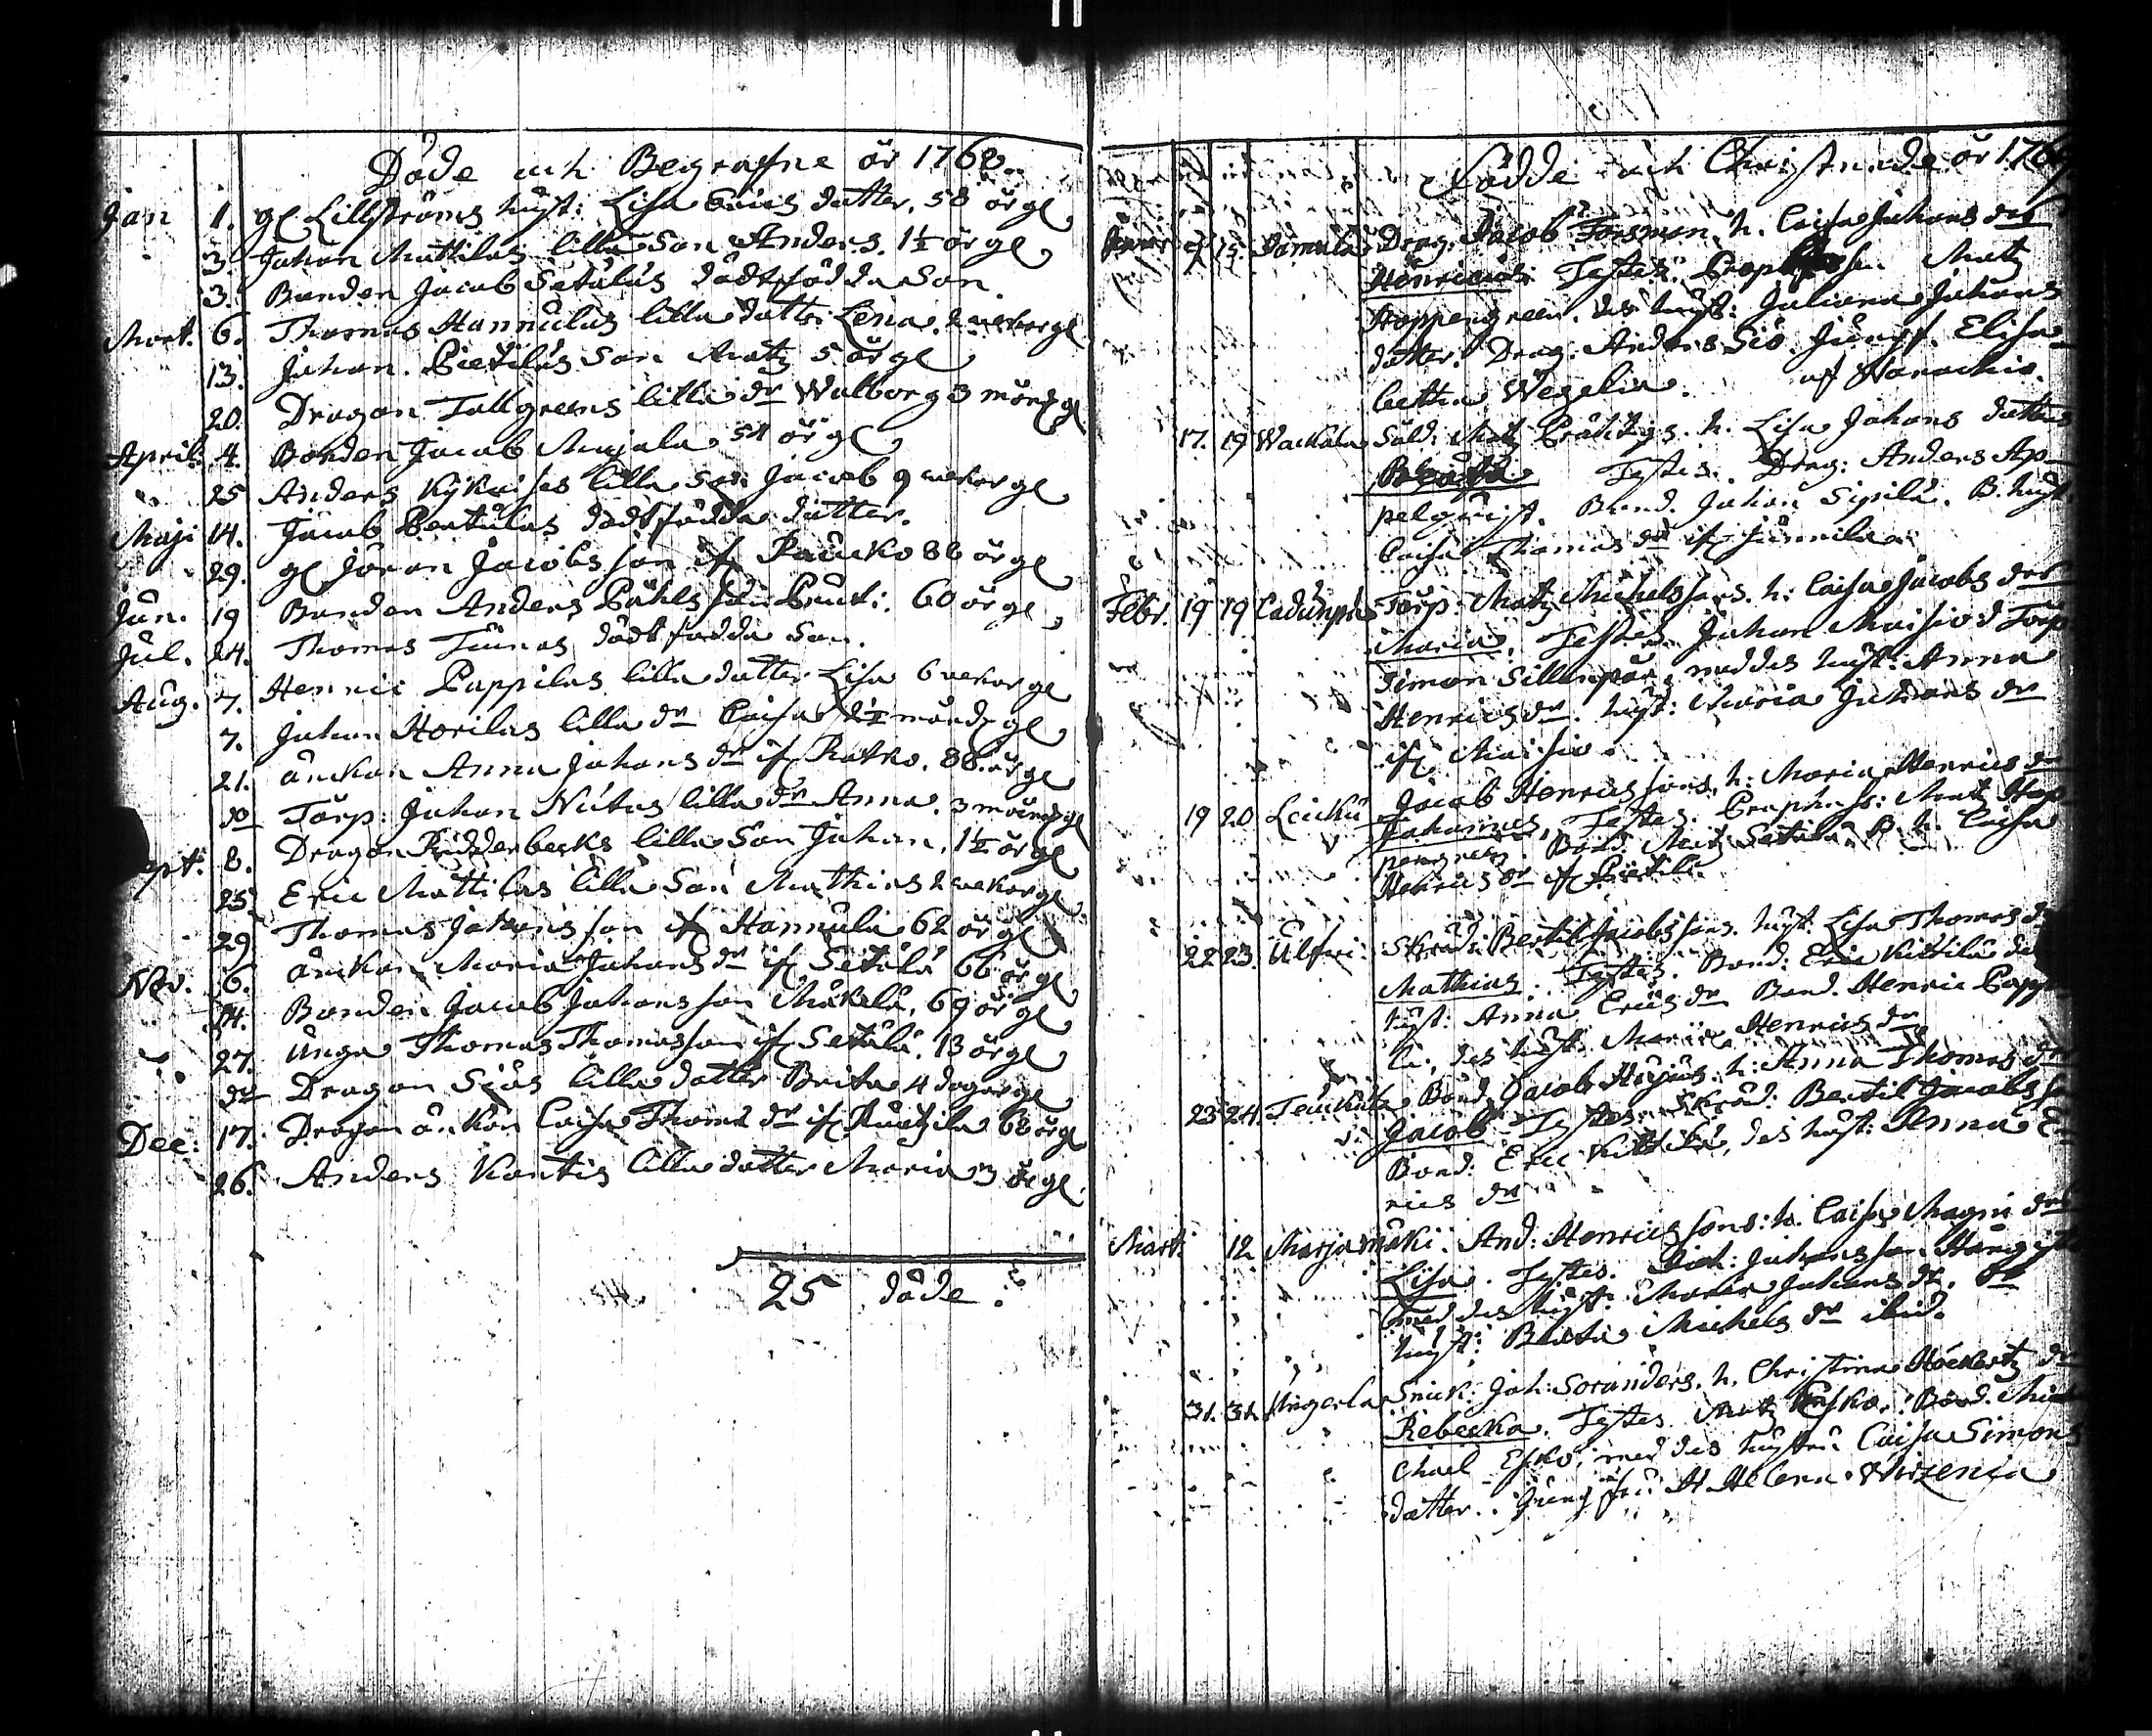 Döde och Begrafne år 1768.
Jan 1. gl Lillströms hust: Lisa Erics datter, 58 år gl
3. Johan Mattilas lilla Son Anders. 1½ år gl
3. Bonden Jacob Setäläs dödtfödda Son.
Mart. 6. Thomas Hannulas lilla datter Lena, 2 wekor gl
13. Johan Pietiläs Son Matz 5 år gl
20. Dragon Tallgreens lilla dr Walborg 3 mån gl
April: 4. Bonden Jacob Majala 54 år gl
25 Anders Kÿkeises lilla Son Jacob 9 wekor gl
Maji 14. Jacob Bertulas dödtfödda datter.
29. gl Jöran Jacobsson if Paucko 88 år gl
Jun. 19 Bonden Anders Påhlsson 60 år gl
Jul. 24. Thomas dödtfödda Son.
Aug. 7. Henric Pappilas lilla datter Lisa 6 wekor gl
7. Johan Horilas lilla dr Caisa 2½ månd gl
21. änckan Anna Johans dr if Ratko. 88 år gl
do Torp: Johan lilla dr Anna. 3 månd gl
ept: 8. Dragon Ridderbecks lilla Son Johan, 1½ år gl
25 Eric Mattilas lilla Son Mathias 2 wekor gl
29 Thomas Johansson if Hannula 62 år gl
Nov. 6. änckan Maria Johans dr if Setälä 66 år gl
14. Bonden Jacob Johansson Mäkelä, 69 år gl
27. Unga Thomas Thomasson if Setälä, 13 år gl
do Dragon Siös lilla datter Brita 4 dagar gl
Dec: 17. Dragon änkan Caisa Thoms dr if 68 år gl
26. Anders Kontis lilla datter Maria 3 år gl.
25 döde.
Födde och Christnade år 176
15. Drag: Jacob Forsman, h. Caisa Johans dr
Henricus. Testes. Matz
Hoppengreen. des hust: Juliana Johans
datter. Drag: Anders Siö. Jungf. Elisa
betha Wegelia. af
17. 19 Wackala Sold: Matz h. Lisa Johans datter
Beata Testes. Drag: Anders Ap
pelquist. Bond. Johan Sipilä. B. hust.
Caisa Thomas dr if Junnila
Febr. 19 19 Torp: Matz Michelssons. h: Caisa Jacobs dr
Maria. Testes. Johan Maisio Torp
Simon Sillanpää, med des hust: Anna
Henrics dr. hust: Maria Johans dr
if Maisio.
19 20 Leicku Jacob Henricssons. h: Maria Henrics dr
Johannes. Testes. Matz Hop
pengreen. Bond. Matz Setälä B. h. Caisa
Henrics dr if Pietilä
22 23. Ulfwi: Skräd: Bertil Jacobssons. hust. Lisa Thomas d
Mathias. Testes. Bond: Eric Kittilä de
hust: Anna Erics dr Bond. Henric Pappi
la, des hust: Maria Henrics dr
23 24. Bond. Jacob h: Anna Thomas dr
Jacob Testes. Skräd: Bertil Jacobss
Bond: Eric Kittilä, des hust: Anna E
rics dr
Mart: 12 Marjamäki. And: Henricssons: h. Caisa Magni dr
Lisa. Testes. Johansson
med des hust: Maria Johans dr.
hust: Beata Michels dr ibid.
31. 31. Ungerla Snick: Joh: Soranders. h. Christina
Rebecka. Testes. Matz Esko. Bond. Mi
chael Esko, med des hustru Caisa Simons
datter. Jungfru H. Helena Wirzenia